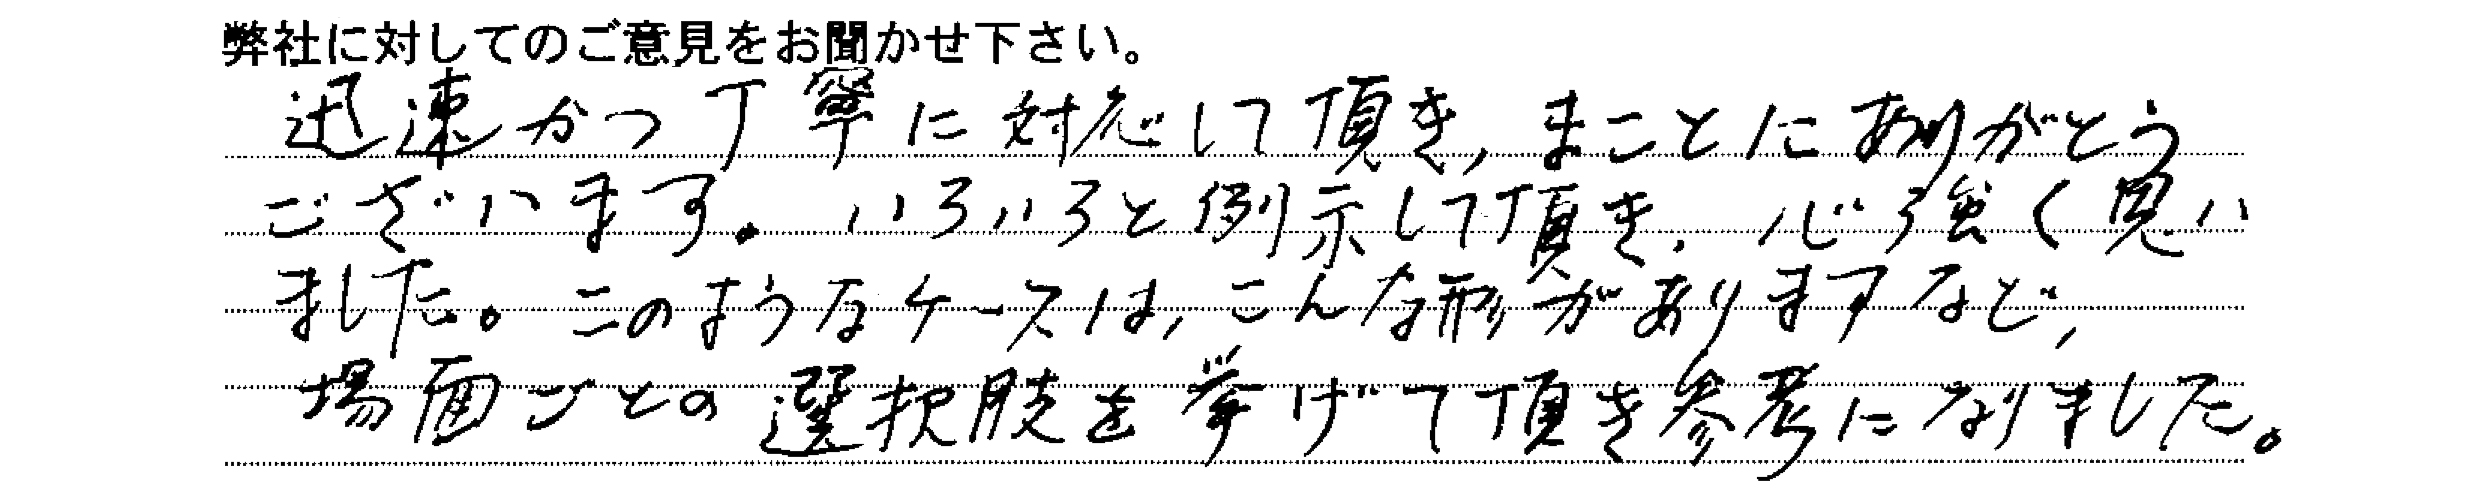 弊社に対してのご意見をお聞かせ下さい。
迅速かつ丁寧に対応して頂き,まことにありがとう
ございます。いろいろと例示して頂き、心強く思い
ました。このようなケースは,こんな形がありますなど,
場面ごとの選択肢を挙げて頂き参考になりました。